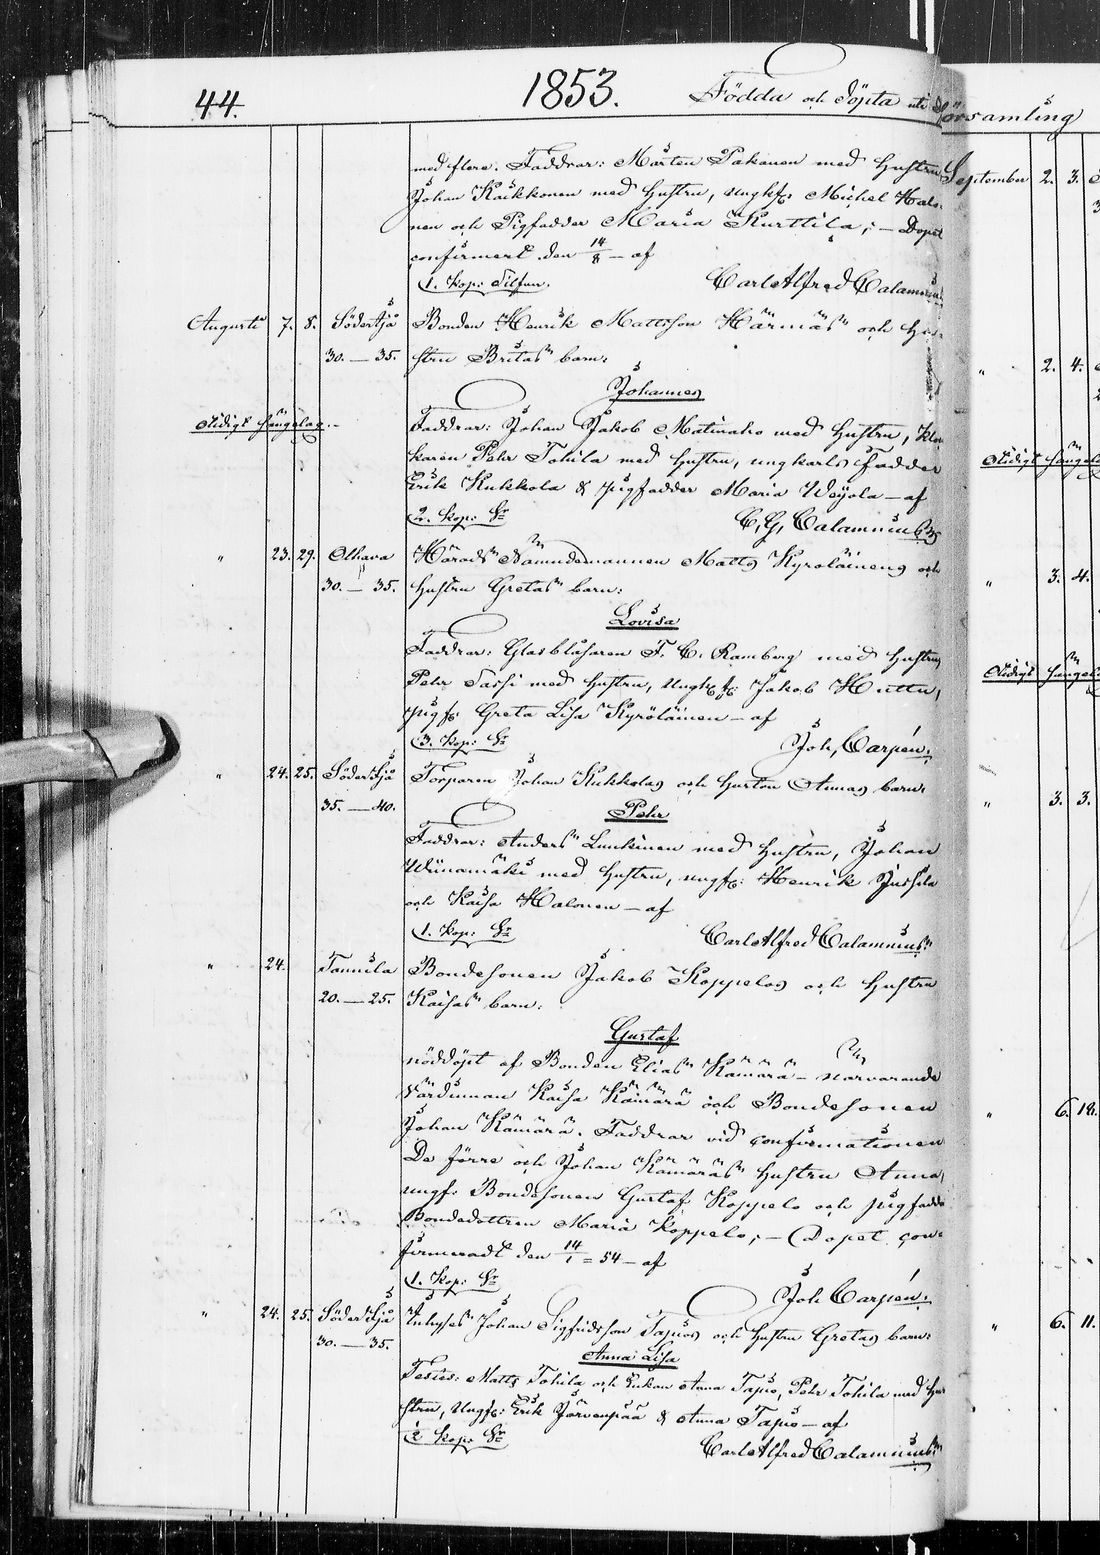 44.
1853.
Födda och Döpta uti Församling
med flere. Faddrar: Mårten Pakanen med Hustru,
Johan Kaikkonen med Hustru, ungkf: Michel Halo-
nen och Pigfadder Maria Kurttila; — Dopet
confirmert den 14/8 — af
1. Kop:
Carl Alfred Calamnius
Augusti 7. 8. Söderåsjä Bonden Henrik Mattsson Härmäs och Hu-
30. — 35. stru Britas barn:
Johannes
Oldigt hängelag.
Faddrar: Johan Jakob Matinaho med Hustru, Kloc-
karen Pehr Tohila med Hustru, ungkarls Fadder
Erik Kukkola & pigfadder Maria Weijola — af
2. Kop: Sr
C. G. Calamnius
" 23. 29. Olhava Härads Nämndemannen Matts Kyröläinens och
30. — 35. Hustru Gretas barn:
Lovisa
Faddrar: Glasblåsaren F. C. Ramberg med Hustru,
Pehr Sassi med Hustru, Ungkf: Jakob Huttu,
pigf: Greta Lisa Kyröläinen — af
3. Kop: Sr
Joh. Carpén.
" 24. 25. Torparen Johan Kukkolas och Hustru Annas barn:
35. — 40. Pehr
Faddrar: Anders Lunkinen med Hustru, Johan
Wiinamäki med Hustru, ungf: Henrik Jussila
och Kaisa Halonen — af
1. Kop: Sr
Carl Alfred Calamnius
" 24. Tannila Bondesonen Jakob Koppelos och Hustru
20. — 25. Kaisas barn:
Gustaf
nöddöpt af Bonden Elias Kämärä — närvarande
värdinnan Kaisa Kämärä och Bondesonen
Johan Kämärä. Faddrar vid confirmationen
De förre och Johan Kämäräs Hustru Anna,
ungf: Bondesonen Gustaf Koppelo och pigfadder
Bondedottren Maria Koppelo; — Dopet con-
firmeradt den 14/1 = 54 — af
1. Kop: Sr
Joh. Carpén.
" 24. 25. Inhyses Johan Sigfridsson Tapios och Hustru Gretas barn:
30. — 35. Anna Lisa
Testes: Matts Tohila och Enkan Anna Tapio, Pehr Tohila med Hu-
stru, Ungf: Erik Järvenpää & Anna Tapio — af
2 Kop: Sr
Carl Alfred Calamnius
September 2. 3.
" 2. 4.
" 3. 4.
" 3. 3.
" 6. 18.
" 6. 11.